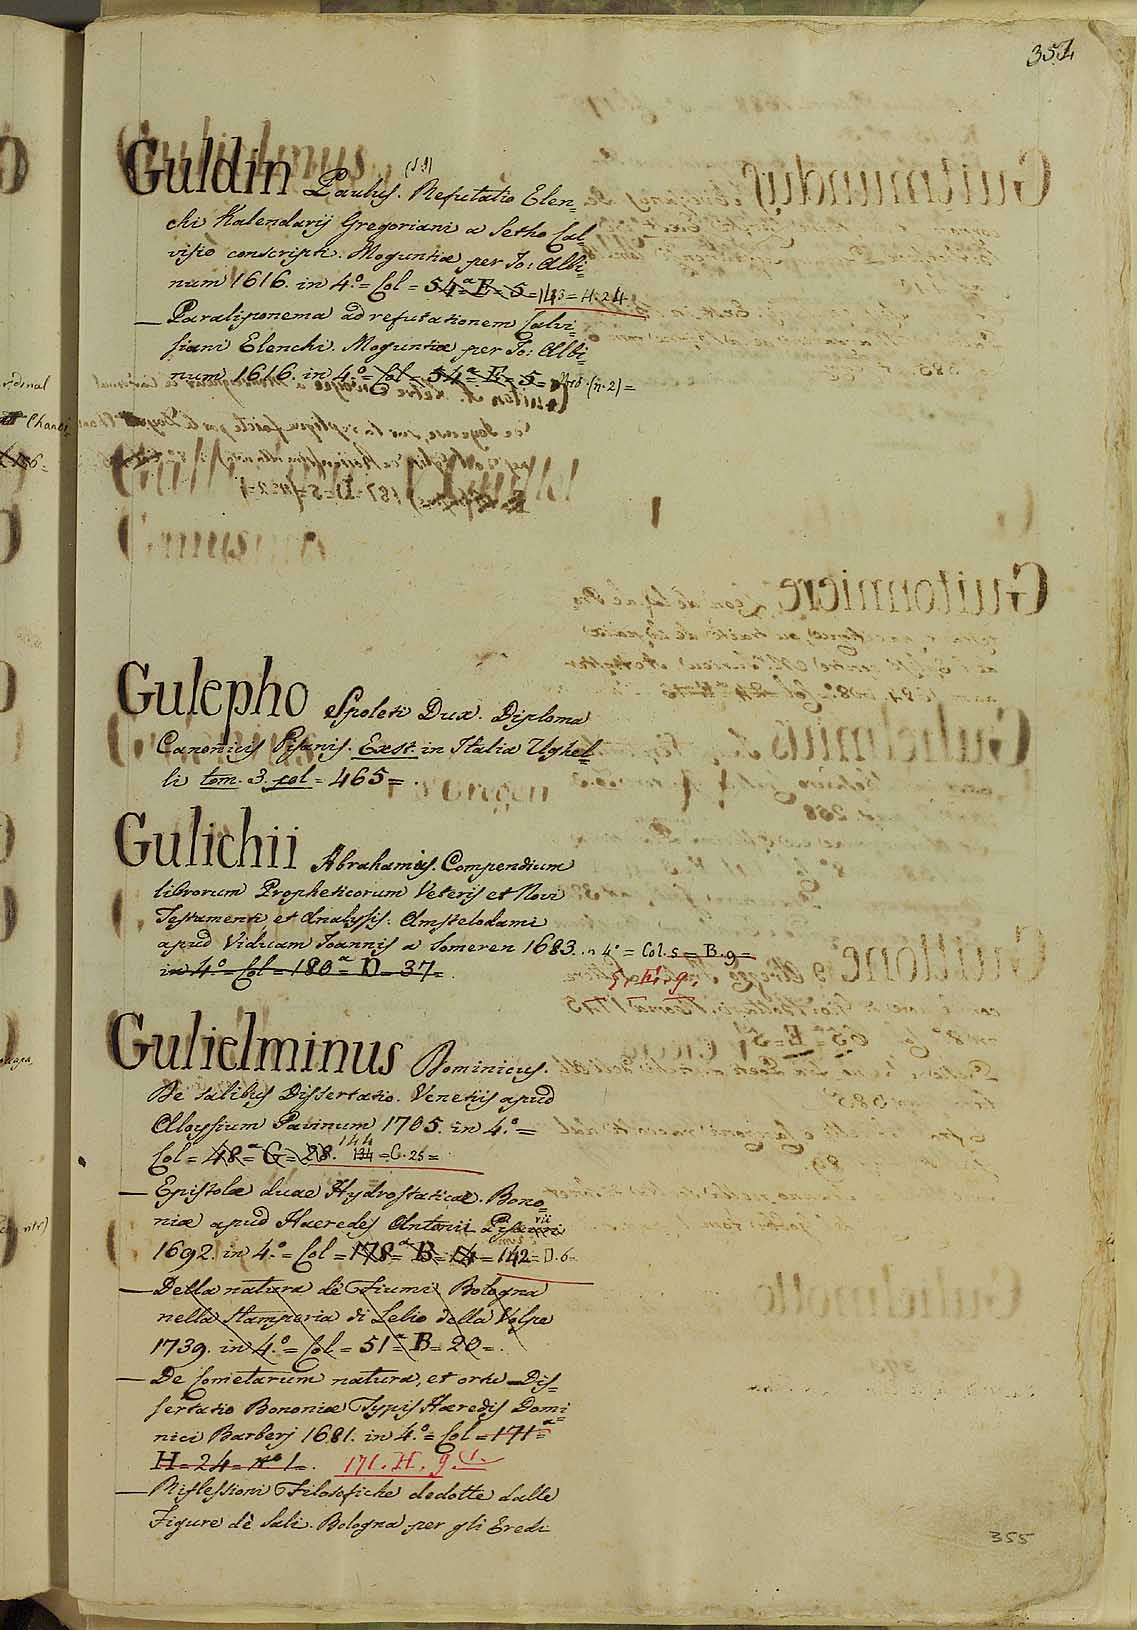 354
Guldin Paulus. (S.J.) Refutatio Elen=
chi Kalendarij Gregoriani a Setho Cal=
visio conscripti. Moguntiæ per Jo: Albi=
num 1616. in 4.º = Col = 54ª = E = 5 = 143 = H. 24
— Paraliponema ad refutationem Calvi=
siani Elenchi. Moguntiæ per Jo: Albi=
num 1616. in 4.º = Col = 54ª = E = 5 = (n. 2) =
Gulepho Spoleti Dux. Diploma
Canonicis Pisanis. Exst. in Italia Ughel=
li tom. 3. col = 465 = .
Gulichii Abrahamis. Compendium
librorum Propheticorum Veteris et Novi
Testamenti et Analysis. Amstelodami
apud Viduam Joannis a Someren 1683. in 4º = Col. 5 = B. 9 =
in 4.º = Col = 180ª = D = 37 = .
Gulielminus Dominicus.
De Salibus Dissertatio. Venetiis apud
Aloysium Pavinum 1705. in 4.º =
144
Col = 48ª = G = 28. 134 = C. 25 =
— Epistolæ duae Hydrostaticæ. Bono=
niæ apud Haeredes Antonii Pisarii
1692. in 4.º = Col = 178ª = B = 14 = 142 = D. 6
— Della natura de Fiumi Bologna
nella Stamperia di Lelio della Volpe
1739. in 4.º = Col = 51ª = B = 20 = .
— De Cometarum natura, et ortu Dis=
sertatio Bononiæ Typis Hæredis Domi=
nici Barberj 1681. in 4.º = Col = 171ª =
H = 24 = nº 1 = . 171. H. 9. 1.
— Riflessioni Filosofiche dedotte dalle
Figure de Sali. Bologna per gli Eredi
355